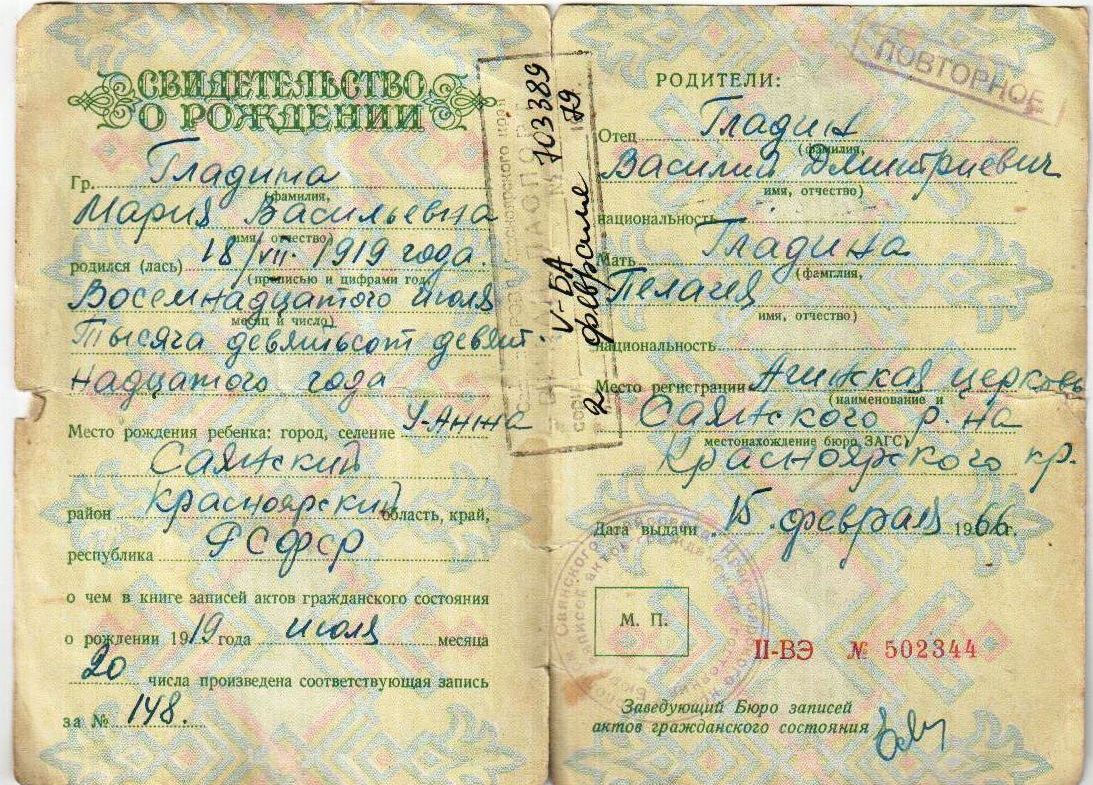 СВИДЕТЕЛЬСТВО
О РОЖДЕНИИ
Гр. Гладина
(фамилия,
Мария Васильевна
имя, отчество)
родился (лась) 18/VII. 1919 года.
(прописью и цифрами год,
Восемнадцатого июля
месяц и число)
Тысяча девятьсот девят.
надцатого года
Место рождения ребенка: город, селение У-Анжа
Саянский
район Красноярский область, край,
республика РСФСР
о чем в книге записей актов гражданского состояния
о рождении 1919 года июля месяца
20 числа произведена соответствующая запись
за № 148.
V-БА 703389
2 февраля 79
ПОВТОРНОЕ
РОДИТЕЛИ:
Отец Гладин
(фамилия,
Василий Дмитриевич
имя, отчество)
национальность
Мать Гладина
(фамилия,
Пелагея
имя, отчество)
национальность
Место регистрации Агинская церковь
(наименование и
Саянского р-на
местонахождение бюро ЗАГС)
Красноярского кр.
Дата выдачи 15 февраля 1966г.
М. П.
II-ВЭ № 502344
Заведующий Бюро записей
актов гражданского состояния